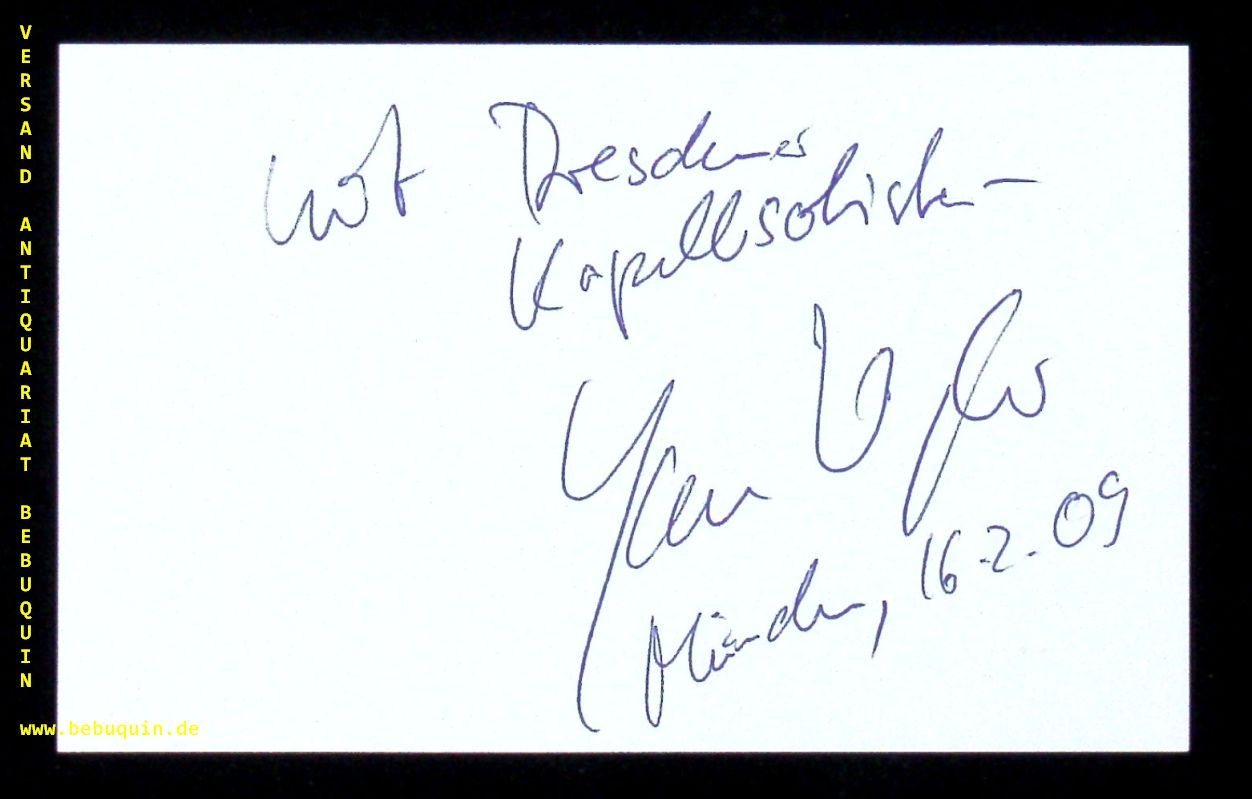 VERSAND ANTIQUARIAT BEBUQUIN
mit Dresdner
Kapellsolisten
Jan Vogler
München, 16.2.09
www.bebuquin.de